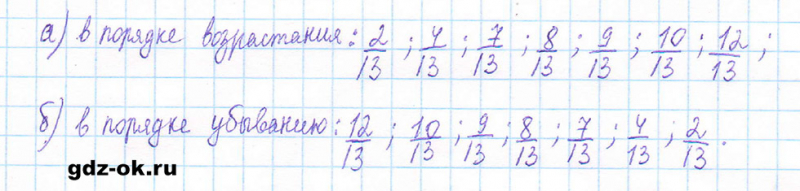 а) в порядке возрастания: 2/13 ; 4/13 ; 7/13 ; 8/13 ; 9/13 ; 10/13 ; 12/13 ;
б) в порядке убыванию: 12/13 ; 10/13 ; 9/13 ; 8/13 ; 7/13 ; 4/13 ; 2/13 .
gdz-ok.ru